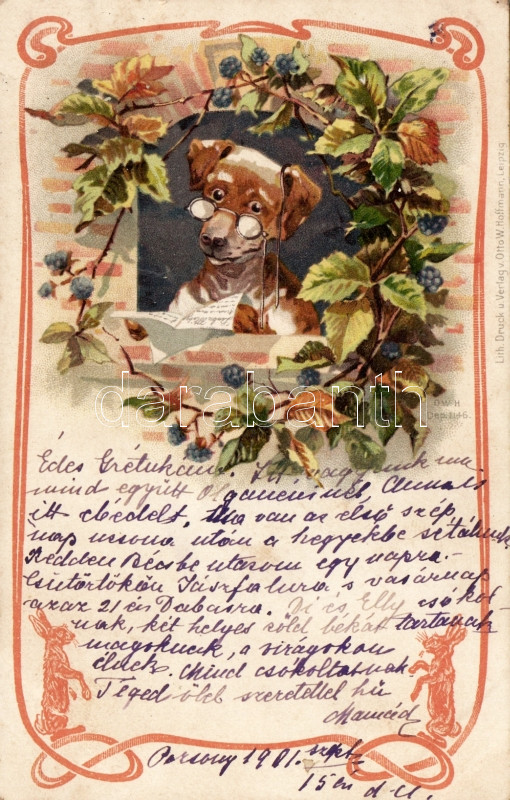 Lith. Druck u. Verlag v. Otto W. Hoffmann, Leipzig.
O.W.H.
Dep. 1146.
darabanth
Édes Grétukám. Itt vagyunk ma
mind együtt
itt ebédelt, Ma van az első szép
nap uzsona után a hegyekbe sétálunk
Kedden Bécsbe utazom egy napra
Csütörtökön Jászfalura s vasárnap
azaz 21 én Dabasra. Di és Elly csókol
nak, két helyes zöld békát tartanak
maguknak, a virágokon
élnek. Mind csókoltatnak
Téged ölel szeretettel hű
Mamád
Pozsony 1901. szept
15 én d.u.